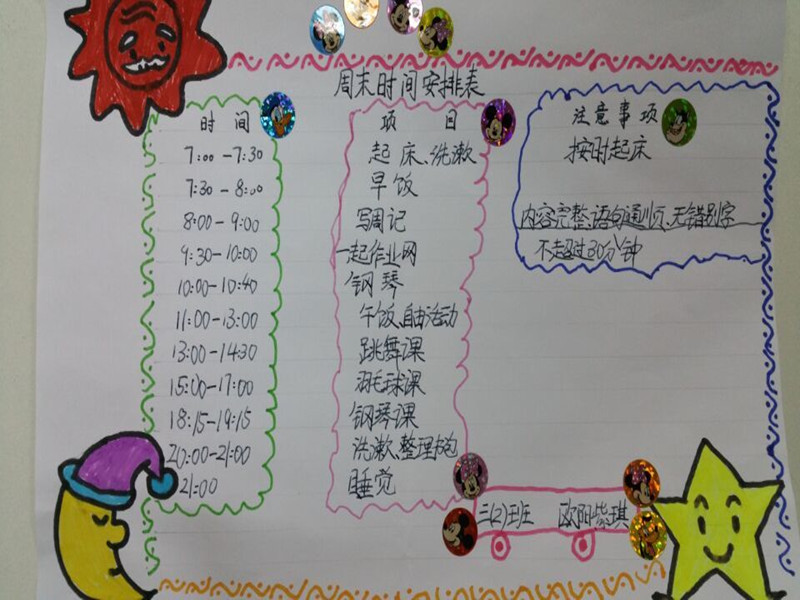 周末时间安排表
时间 项目 注意事项
7:00-7:30 起床、洗漱 按时起床
7:30-8:00 早饭
8:00-9:00 写周记 内容完整、语句通顺、无错别字
9:30-10:00 一起作业网 不超过30分钟
10:00-10:40 钢琴
11:00-13:00 午饭、自由活动
13:00-14:30 跳舞课
15:00-17:00 羽毛球课
18:15-19:15 钢琴课
20:00-21:00 洗漱、整理书包
21:00 睡觉
三(2)班 欧阳紫琪